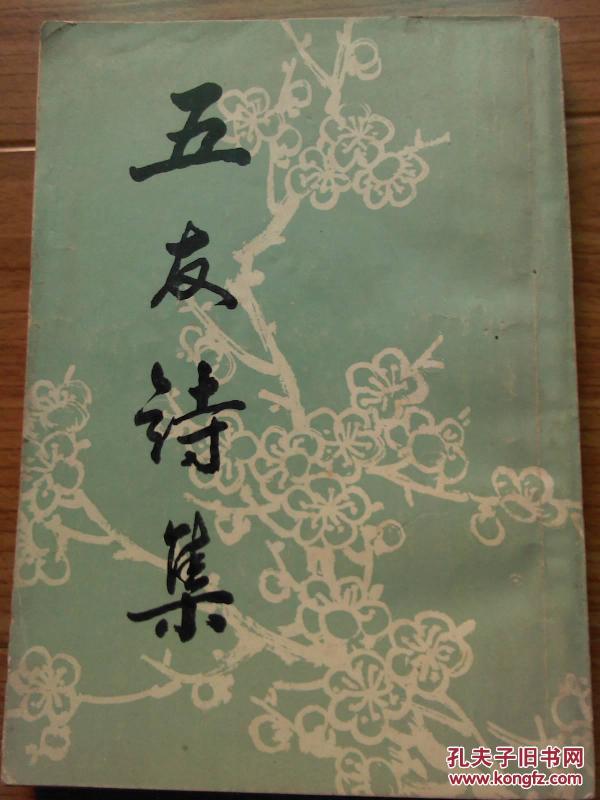 五友诗集
孔夫子旧书网
www.kongfz.com